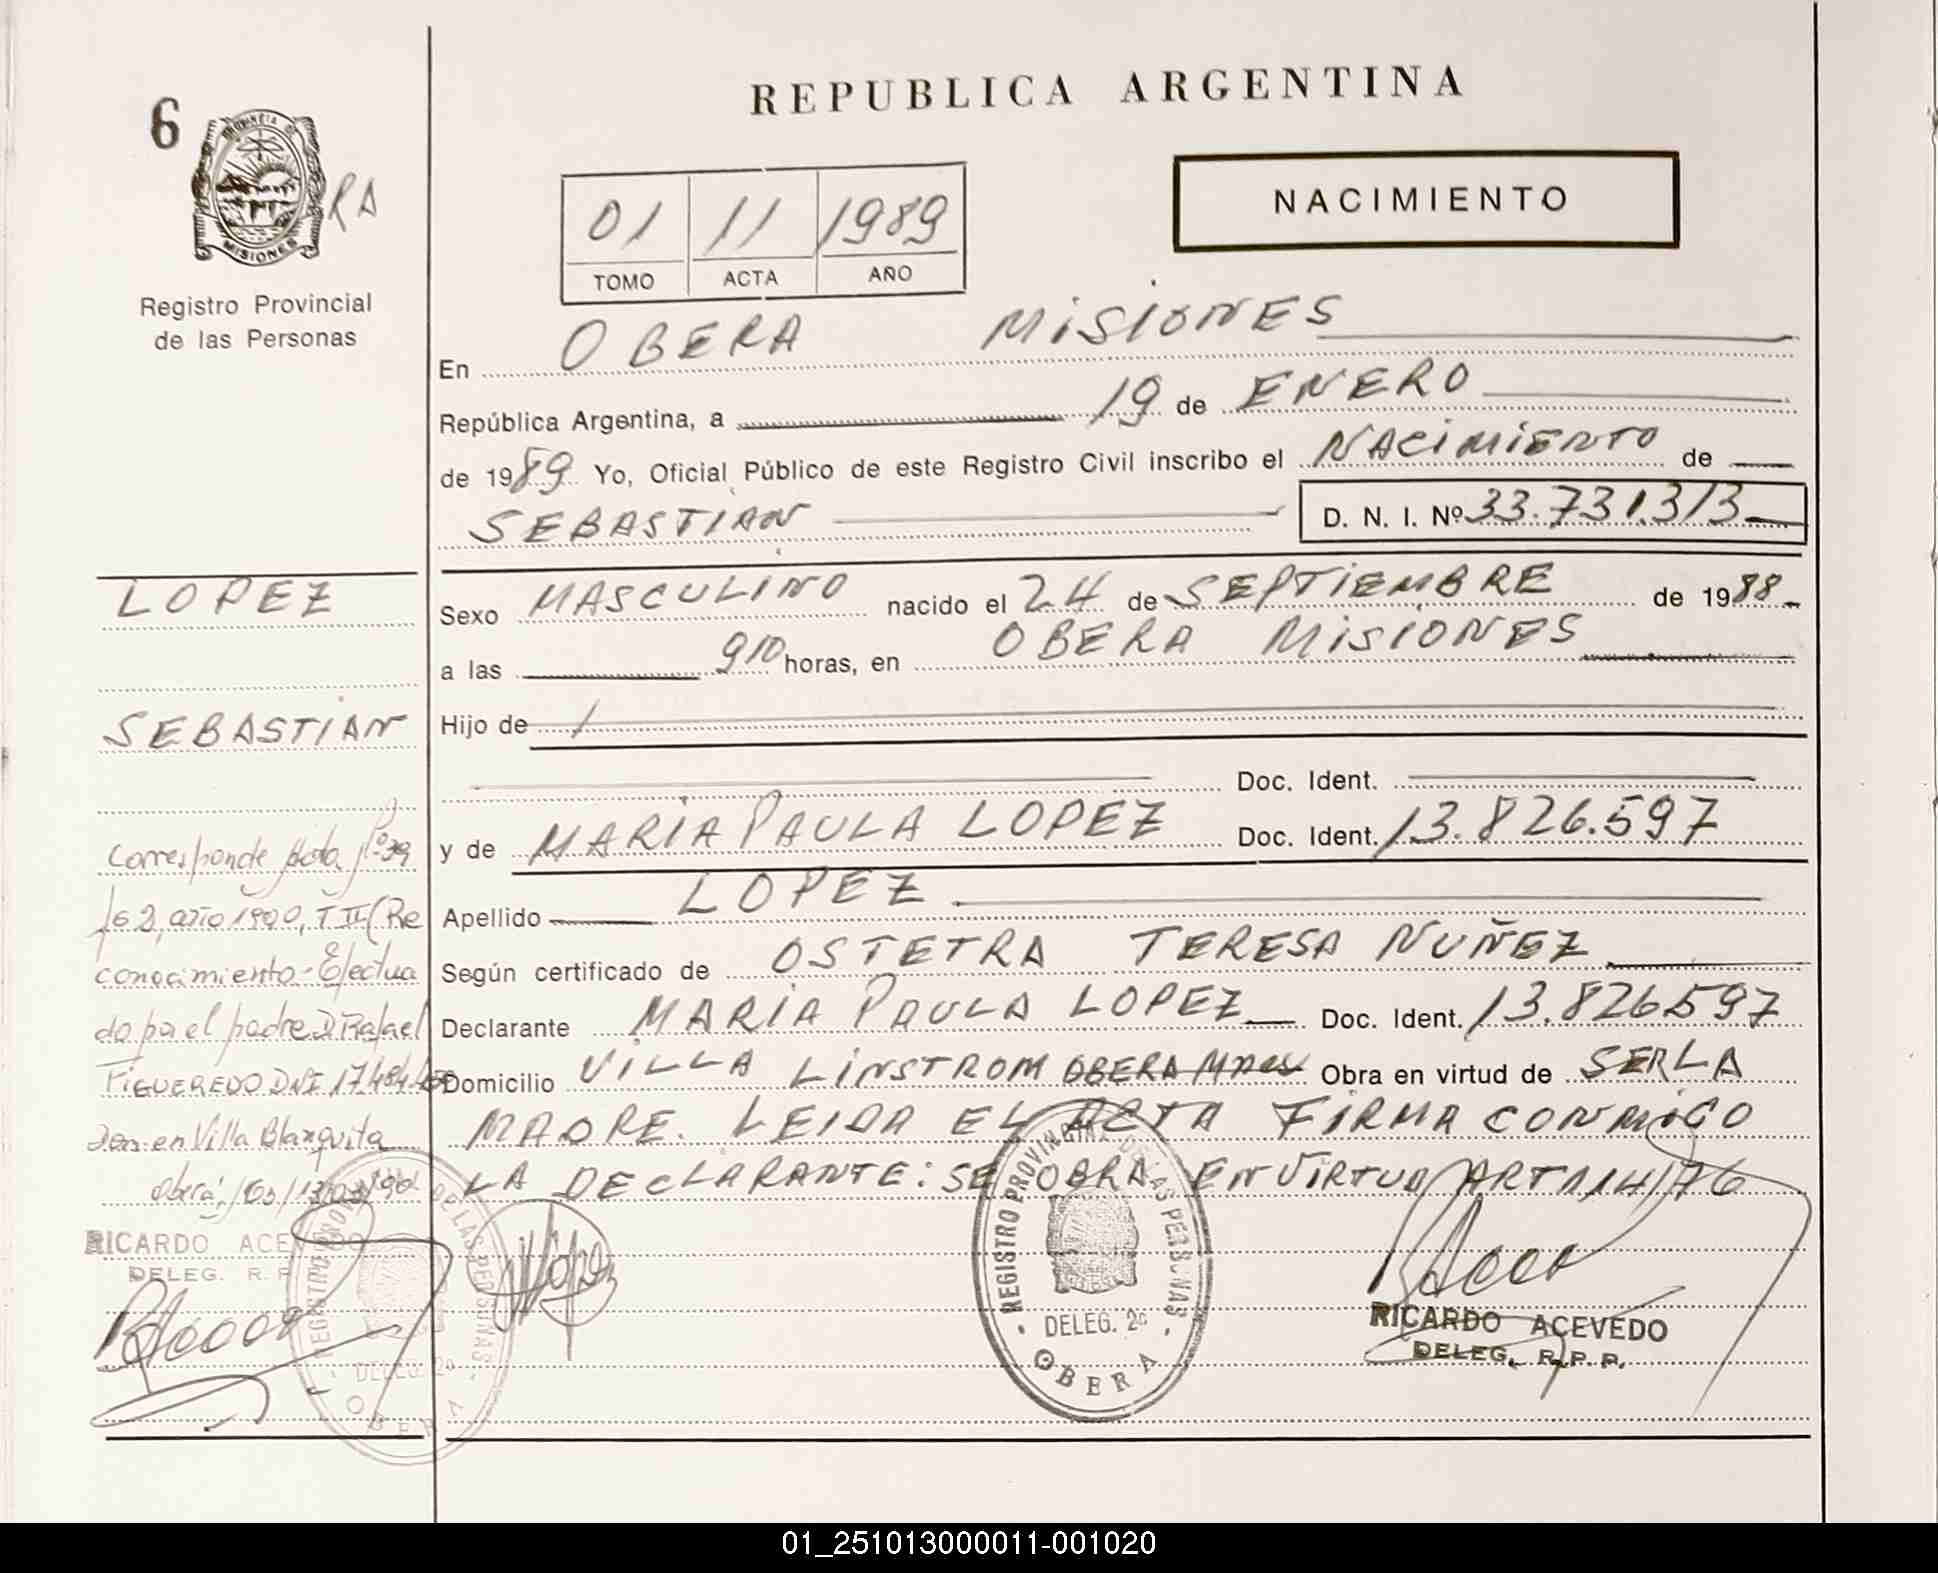 REPUBLICA ARGENTINA
6
PROVINCIA DE
MISIONES
RA
Registro Provincial
de las Personas
01 11 1989
TOMO ACTA AÑO
NACIMIENTO
En OBERA MISIONES
República Argentina, a 19 de ENERO
de 1989 Yo, Oficial Público de este Registro Civil inscribo el NACIMIENTO de
SEBASTIAN D. N. I. Nº 33.731.313
Sexo MASCULINO nacido el 24 de SEPTIEMBRE de 1988
a las 910 horas, en OBERA MISIONES
Hijo de
Doc. Ident.
y de MARIA PAULA LOPEZ Doc. Ident. 13.826.597
Apellido LOPEZ
Según certificado de OSTETRA TERESA NUÑEZ
Declarante MARIA PAULA LOPEZ Doc. Ident. 13.826597
Domicilio VILLA LINSTROM OBERA Mnes Obra en virtud de SER LA
MADRE. LEIDA EL ACTA FIRMA CONMIGO
LA DECLARANTE: SE OBRA EN VIRTUD ART114/76
LOPEZ
SEBASTIAN
Corresponde Acta Nº 39
fº 2, año 1990, T II (Re
conocimiento - Efectua
do por el padre D Rafael
FIGUEREDO DNI 17.484.
Dom en Villa Blanquita
Oberá,
RICARDO ACEVEDO
DELEG. R. P.
REGISTRO PROVINCIAL DE LAS PERSONAS
DELEG. 2º
OBERA
MLopez
REGISTRO PROVINCIAL DE LAS PERSONAS
DELEG. 2º
OBERA
RICARDO ACEVEDO
DELEG. R.P.P.
01_251013000011-001020